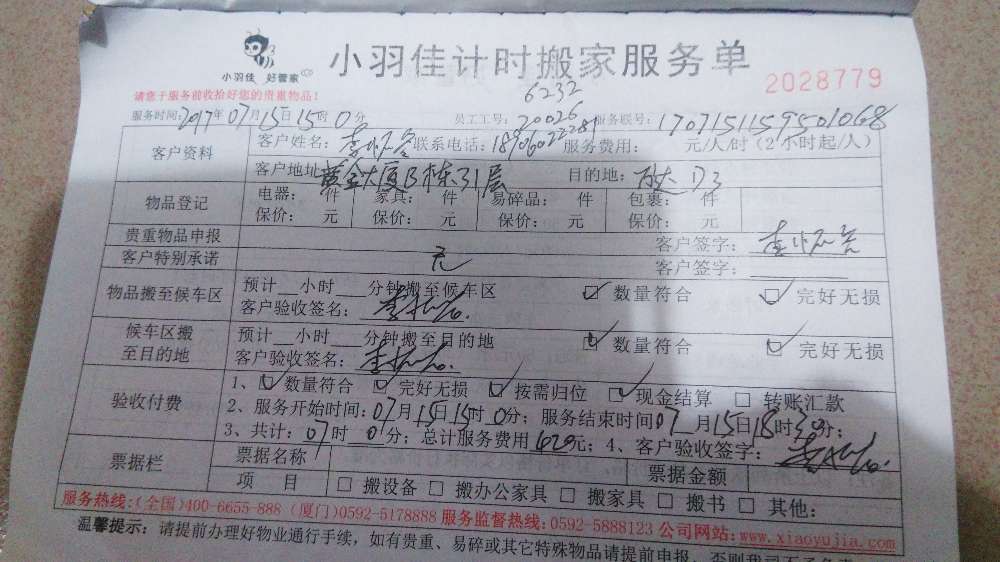 小羽佳 好管家
小羽佳计时搬家服务单
2028779
请您于服务前收拾好您的贵重物品!
6232
服务时间:2017年07月15日15时0分 员工工号:20026 服务联号:1707151159501068
客户资料 客户姓名: 联系电话: 服务费用: 元/人/时(2小时起/人)
客户地址: 黄金大厦B栋31层 目的地:
物品登记 电器: 件 家具: 件 易碎品: 件 包裹: 件
保价: 元 保价: 元 保价: 元 保价: 元
贵重物品申报 客户签字:
客户特别承诺 无 客户签字:
物品搬至候车区 预计__小时___分钟搬至候车区 ☑ 数量符合 ☑ 完好无损
客户验收签名:
候车区搬至目的地 预计__小时___分钟搬至目的地 ☑ 数量符合 ☑ 完好无损
客户验收签名:
验收付费 1、☑ 数量符合 ☑ 完好无损 ☑ 按需归位 ☑ 现金结算 □ 转账汇款
2、服务开始时间:07月15日15时0分;服务结束时间07月15日18时30分;
3、共计:07时0分;总计服务费用 620元;4、客户验收签字:
票据栏 票据名称 票据金额
项 目 □ 搬设备 □ 搬办公家具 □ 搬家具 □ 搬书 □ 其他:
服务热线:(全国)400-6655-888 (厦门)0592-5178888 服务监督热线:0592-5888123 公司网站:www.xiaoyujia.com
温馨提示:请提前办理好物业通行手续,如有贵重、易碎或其它特殊物品请提前申报,否则我司不予负责